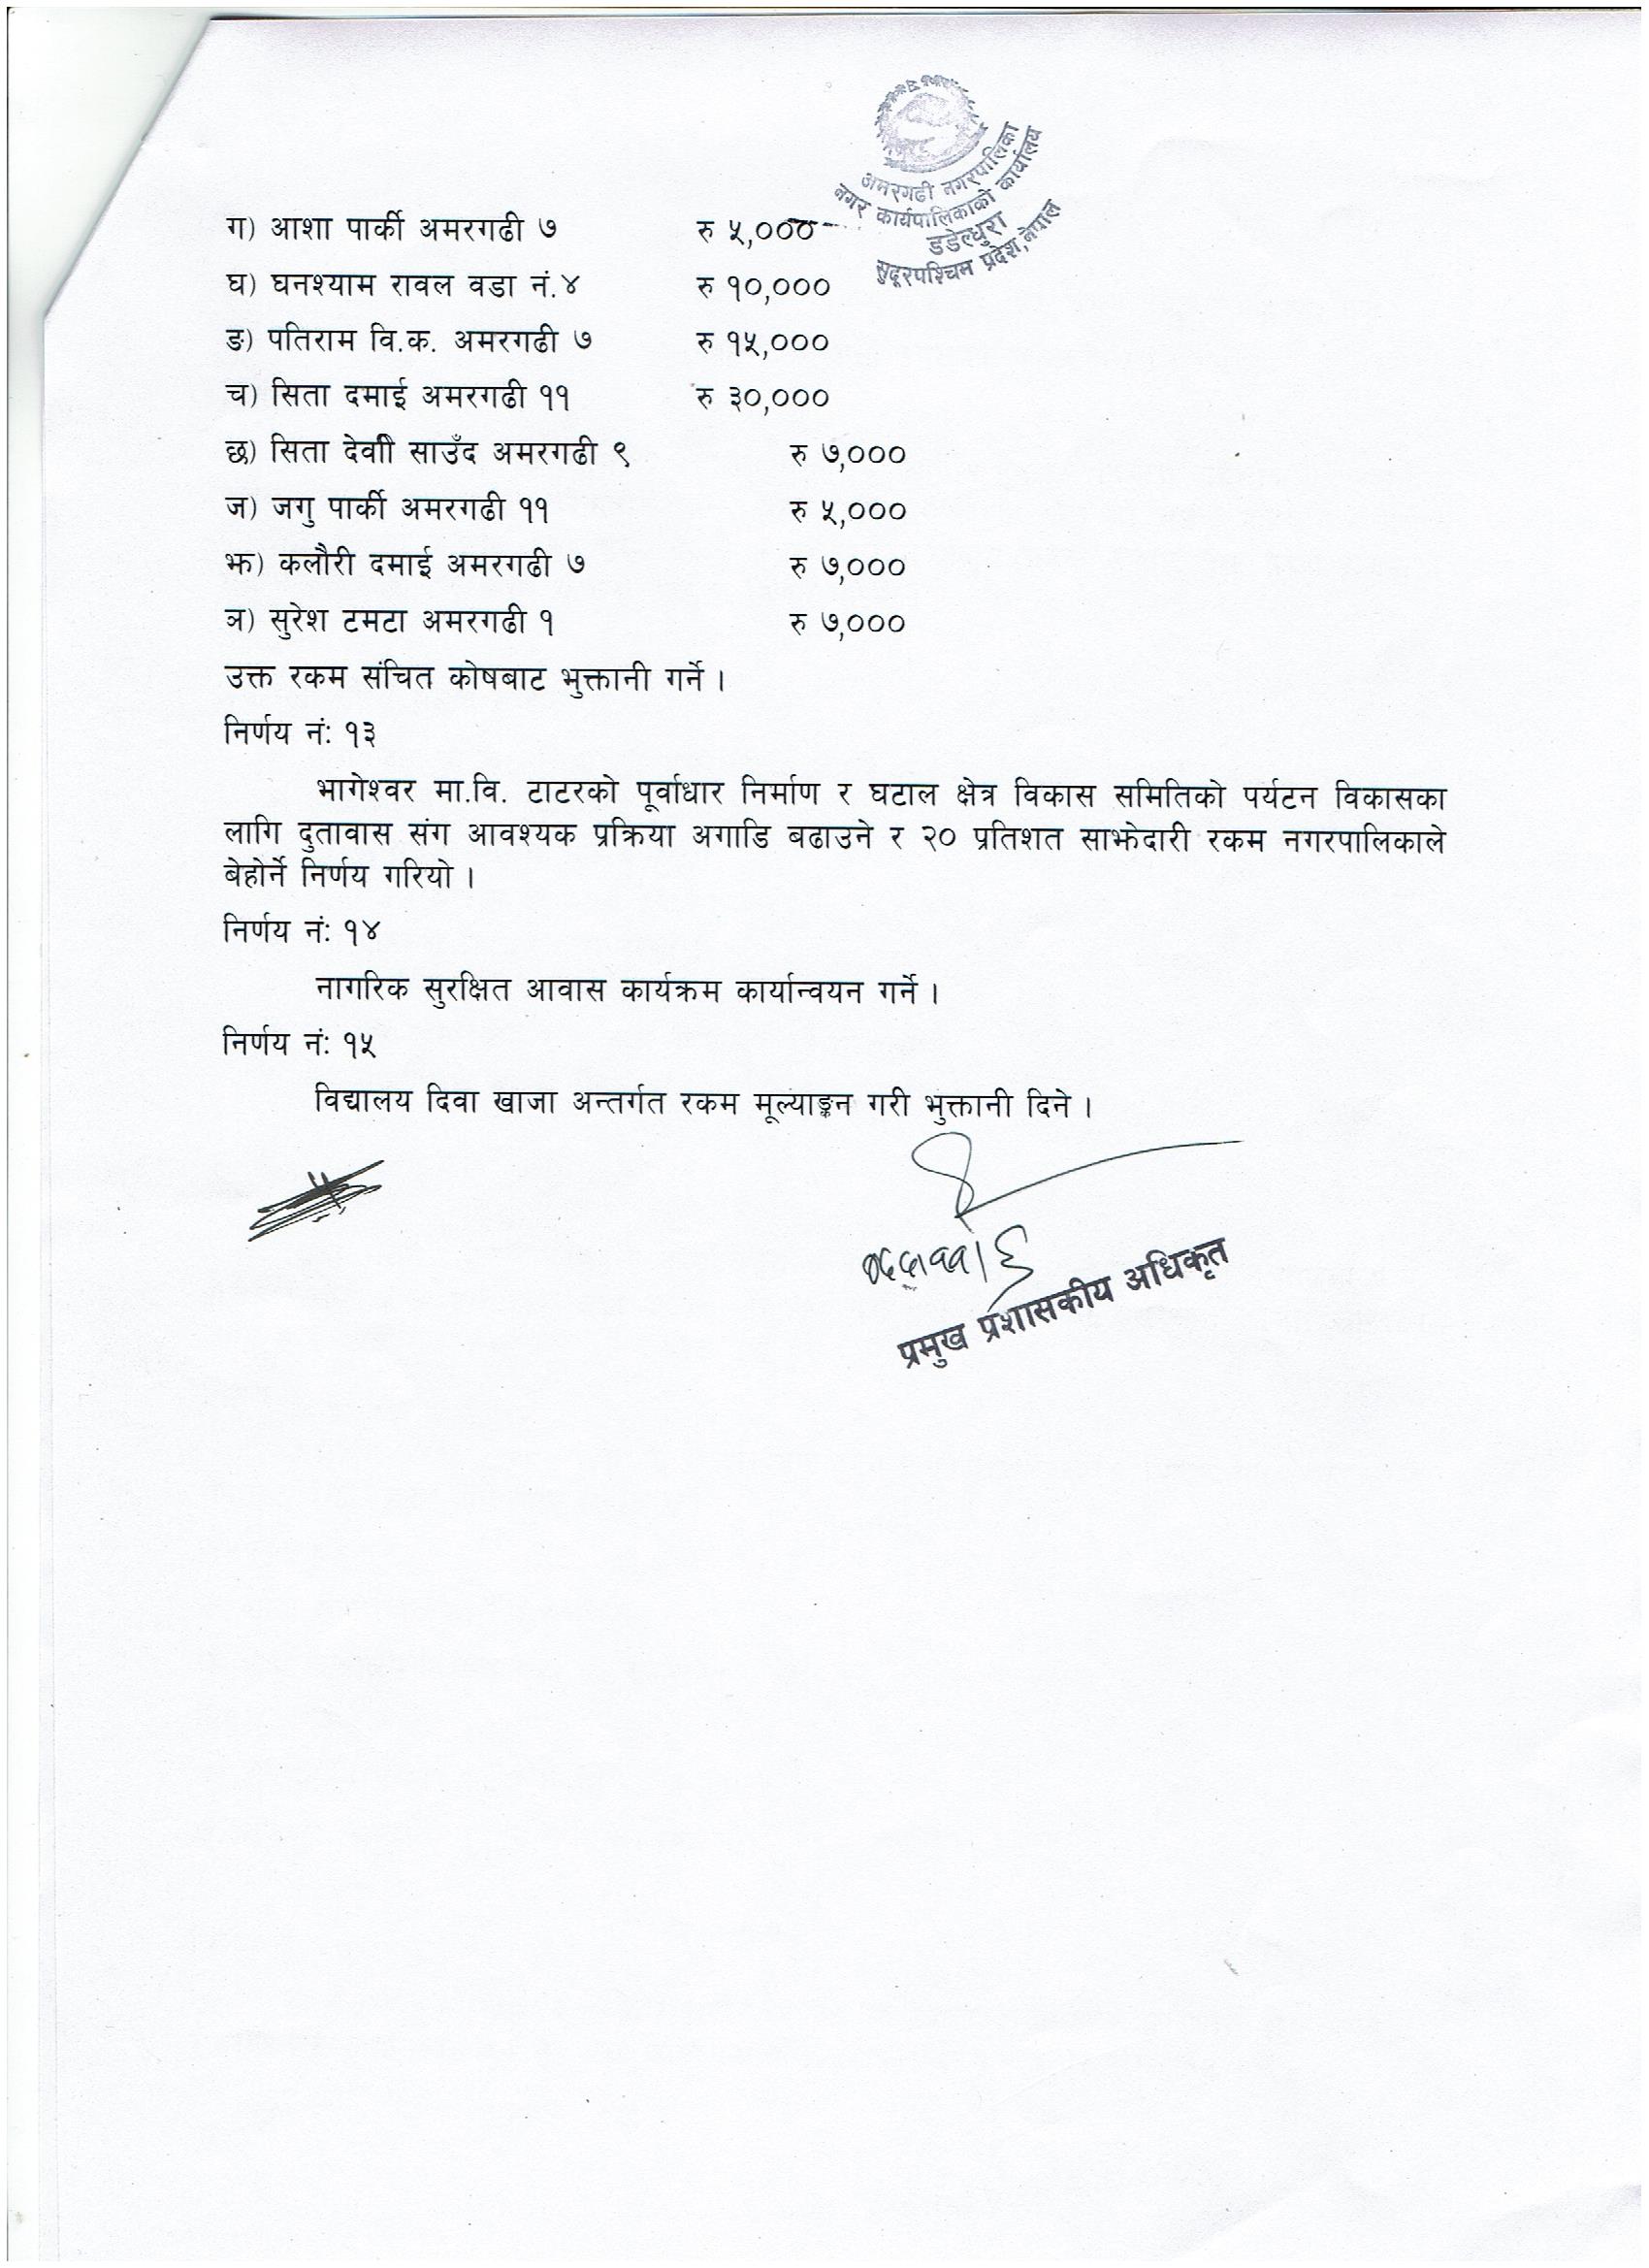 अमरगढी नगरपालिका
नगर कार्यपालिकाको कार्यालय
डडेल्धुरा
सुदूरपश्चिम प्रदेश,नेपाल
ग) आशा पार्की अमरगढी ७ रु ५,०००
घ) घनश्याम रावल वडा नं.४ रु १०,०००
ङ) पतिराम वि.क. अमरगढी ७ रु १५,०००
च) सिता दमाई अमरगढी ११ रु ३०,०००
छ) सिता देवाी साउँद अमरगढी ९ रु ७,०००
ज) जगु पार्की अमरगढी ११ रु ५,०००
झ) कलौरी दमाई अमरगढी ७ रु ७,०००
ञ) सुरेश टमटा अमरगढी १ रु ७,०००
उक्त रकम संचित कोषबाट भुक्तानी गर्ने ।
निर्णय नंः १३
भागेश्वर मा.वि. टाटरको पूर्वाधार निर्माण र घटाल क्षेत्र विकास समितिको पर्यटन विकासका
लागि दुतावास संग आवश्यक प्रक्रिया अगाडि बढाउने र २० प्रतिशत साझेदारी रकम नगरपालिकाले
बेहोर्ने निर्णय गरियो ।
निर्णय नंः १४
नागरिक सुरक्षित आवास कार्यक्रम कार्यान्वयन गर्ने ।
निर्णय नंः १५
विद्यालय दिवा खाजा अन्तर्गत रकम मूल्याङ्कन गरी भुक्तानी दिने ।
प्रमुख प्रशासकीय अधिकृत